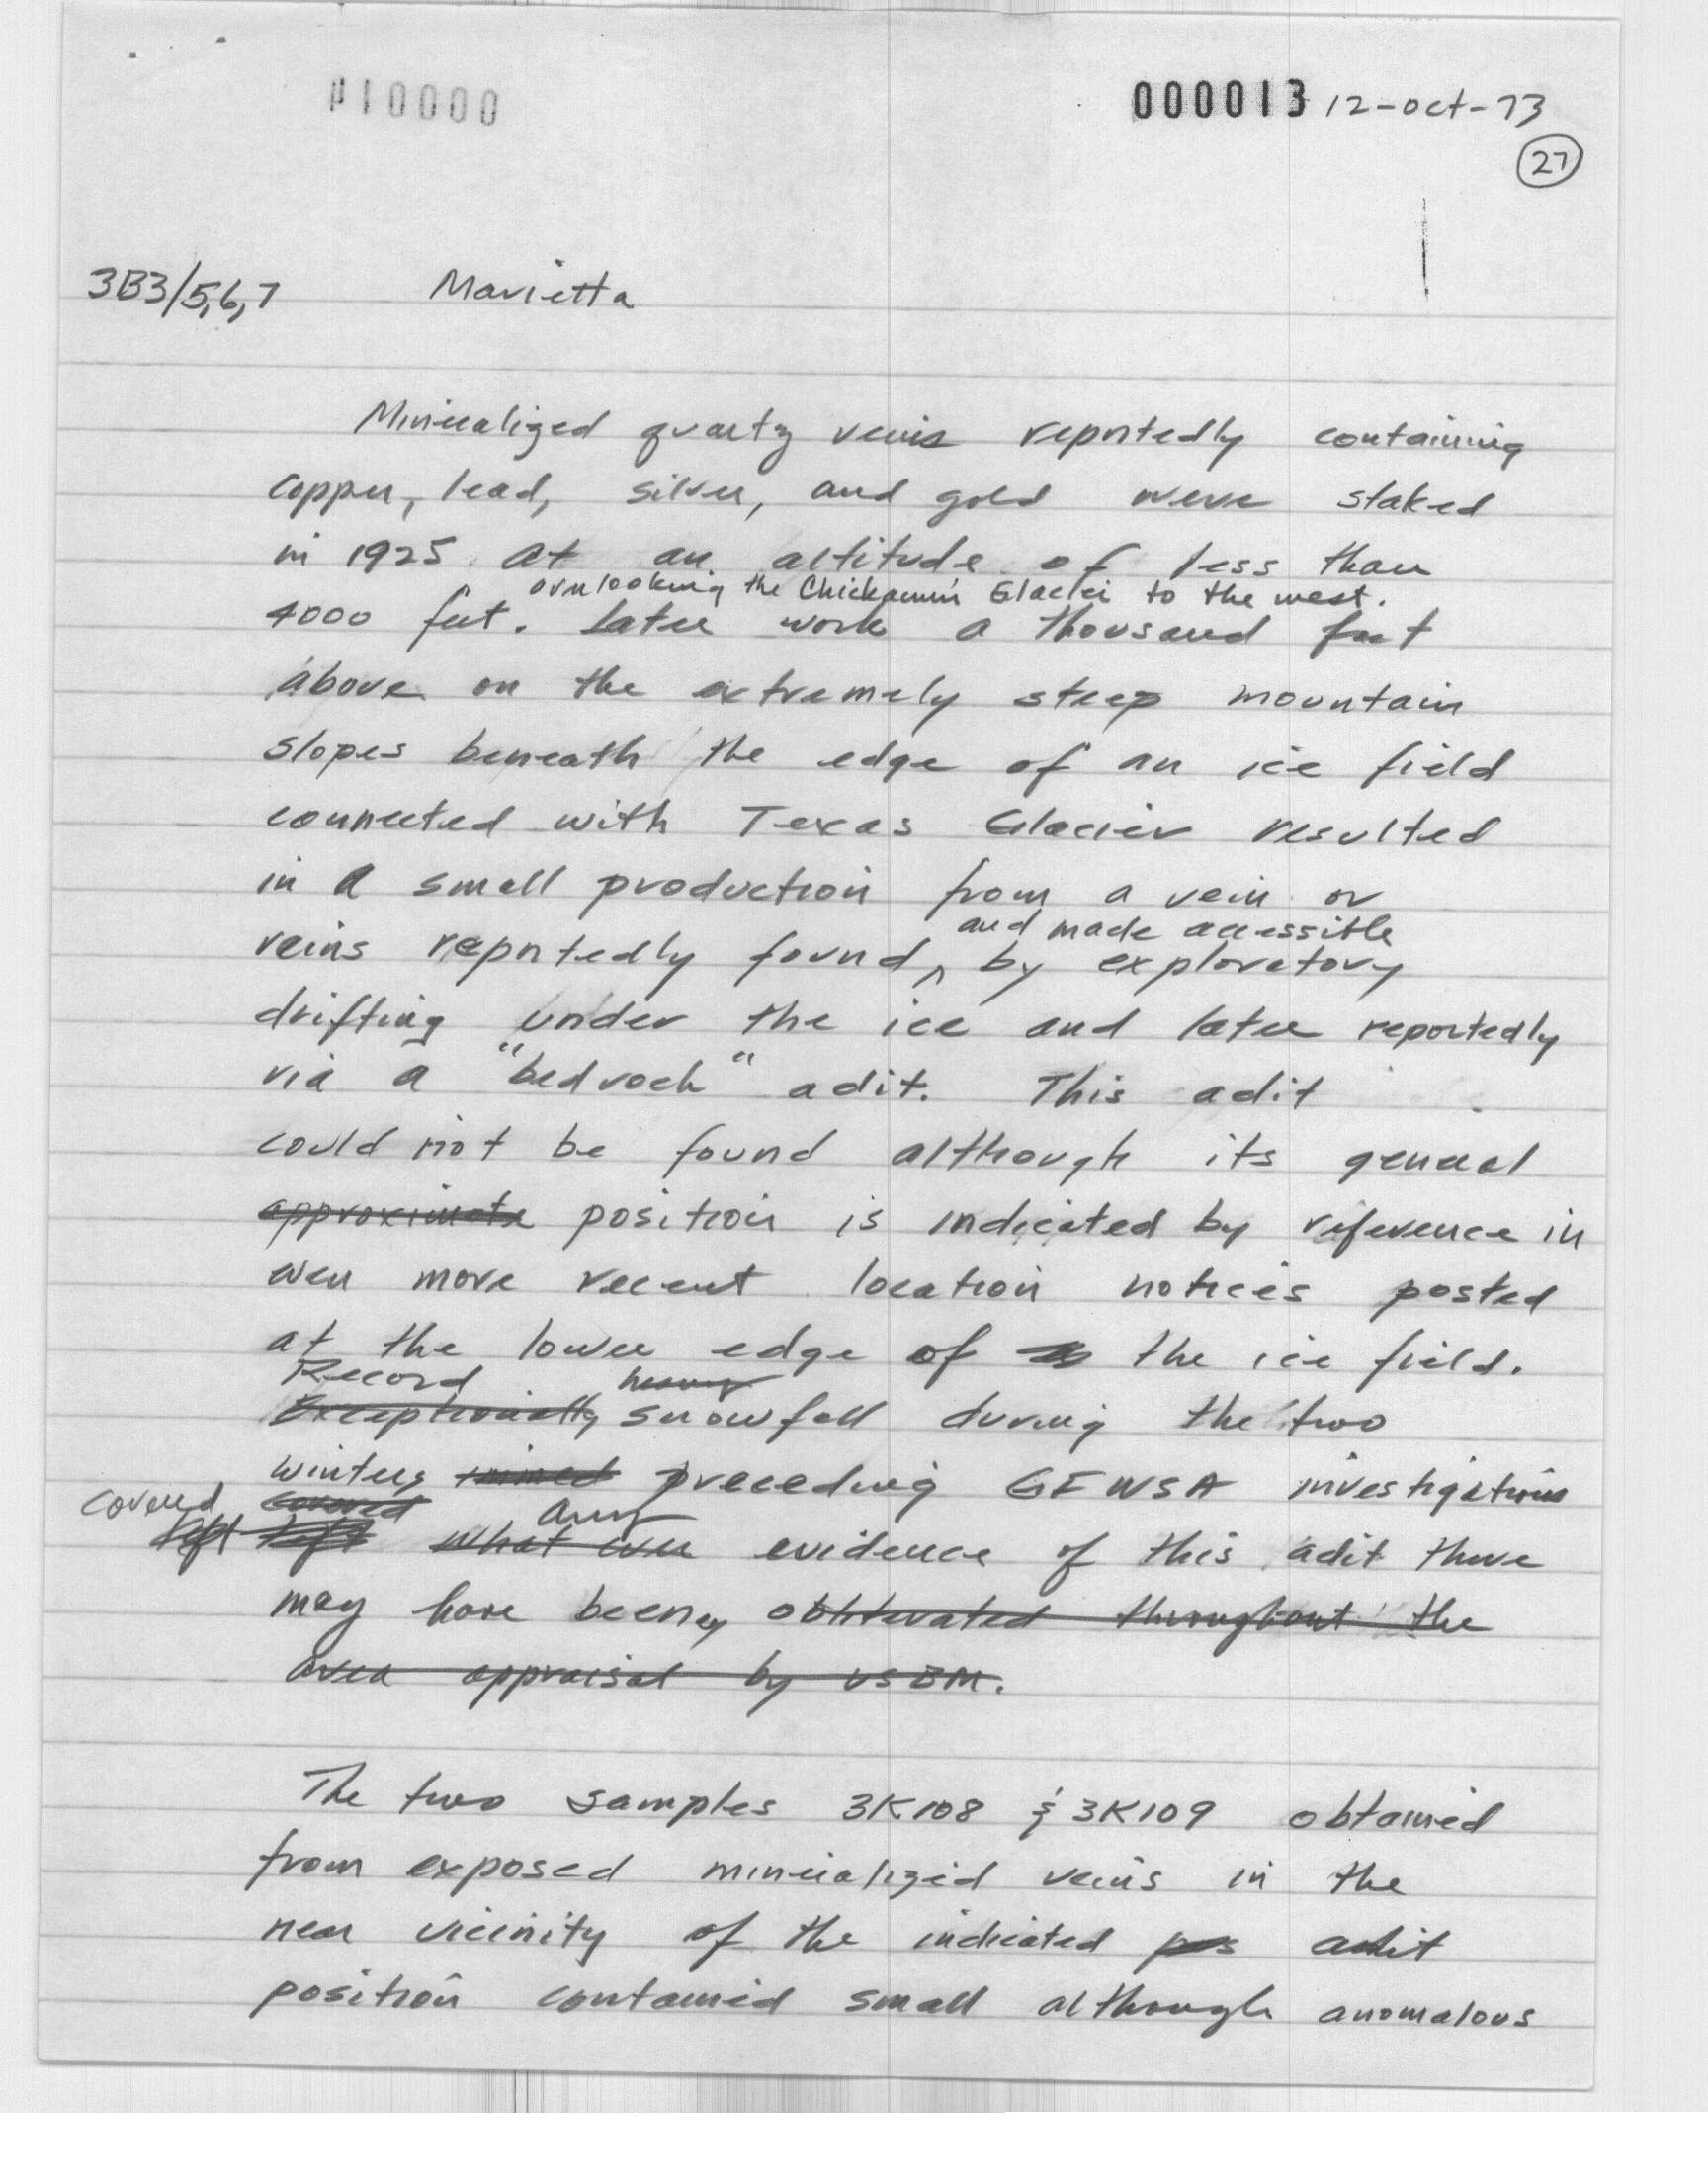 000014
000013 12-Oct-73
27
3B3/5,6,7 Marietta
Mineralized quartz veins reportedly containing
copper, lead, silver, and gold were staked
in 1925 at an altitude of less than
overlooking the Chickamin Glacier to the west.
4000 feet. Later work a thousand feet
above on the extremely steep mountain
slopes beneath the edge of an ice field
connected with Texas Glacier resulted
in a small production from a vein or
and made accessible
veins reportedly found by exploratory
drifting under the ice and later reportedly
via a "bedrock" adit. This adit
could not be found although its general
approximate position is indicated by reference in
even more recent location notices posted
at the lower edge of the ice field.
Record heavy
Exceptionally snowfall during the two
winters preceding GFWSA investigations
covered covered any
left left what ever evidence of this adit there
may have been, obliterated throughout the
area appraisal by USBM.
The two samples 3K108 & 3K109 obtained
from exposed mineralized veins in the
near vicinity of the indicated pos adit
position contained small although anomalous